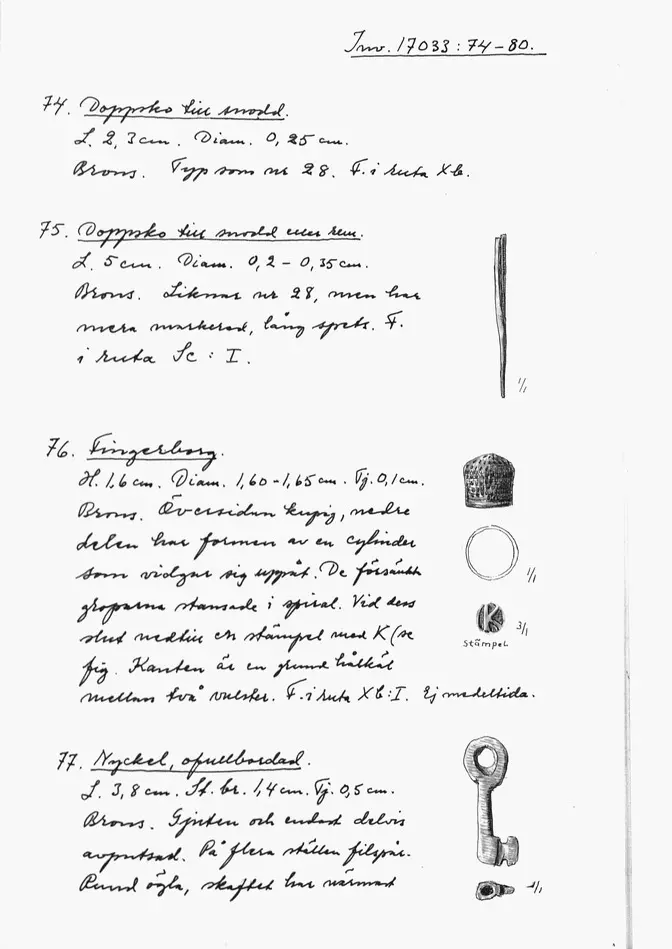 Inv. 17033 : 74 – 80.
74. Doppsko till snodd.
L. 2,3 cm. Diam. 0,25 cm.
Brons. Typ som nr 28. F. i ruta Xb.
75. Doppsko till snodd eller rem.
L. 5 cm. Diam. 0,2 – 0,35 cm.
Brons. Liknar nr 28, men har
mera markerad, lång spets. F.
i ruta Sc : I.
1/1
76. Fingerborg.
H. 1,6 cm. Diam. 1,60 – 1,65 cm. Tj. 0,1 cm.
Brons. Översidan kupig, nedre
delen har formen av en cylinder
som vidgar sig uppåt. De försänkta
groparna stansade i spiral. Vid dess
slut nedtill en stämpel med K (se
fig. Kanten är en grund hålkäl
mellan två vulster. F. i ruta Xb : I. Ej medeltida.
1/1
K
3/1
Stämpel
77. Nyckel, ofullbordad.
L. 3,8 cm. St. br. 1,4 cm. Tj. 0,5 cm.
Brons. Gjuten och endast delvis
avputsad. På flera ställen filspår.
Rund ögla, skaftet har närmast
1/1